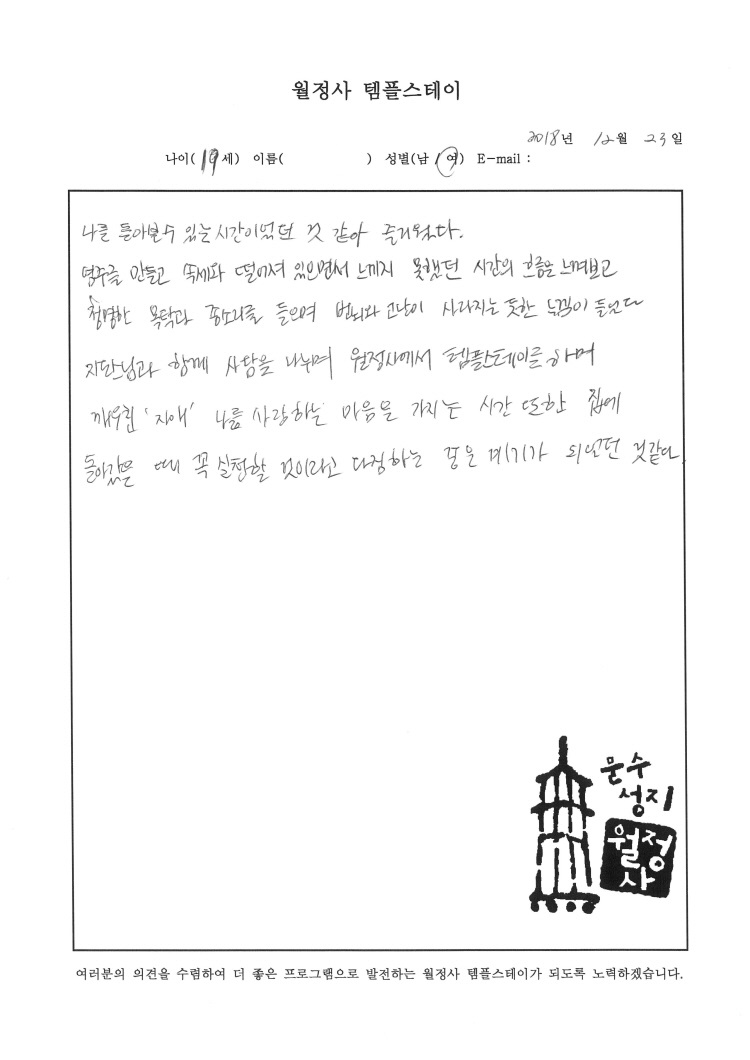 월정사 템플스테이
2018년 12월 23일
나이( 19세) 이름( ) 성별(남 / 여) E-mail :
나를 돌아볼수 있는 시간이었던 것 같아 즐거웠다.
염주를 만들고 속세와 떨어져 있으면서 느끼지 못했던 시간의 흐름을 느껴보고
청명한 목탁과 종소리를 들으며 번뇌와 고난이 사라지는 듯한 느낌이 들었다
지단님과 함께 사담을 나누며 월정사에서 템플스테이를 하며
깨우친 '자애' 나를 사랑하는 마음을 가지는 시간 또한 집에
돌아갔을 때 꼭 실현할 것이라고 다짐하는 좋은 계기가 되었던 것같다.
문수
성지
월정
사
여러분의 의견을 수렴하여 더 좋은 프로그램으로 발전하는 월정사 템플스테이가 되도록 노력하겠습니다.